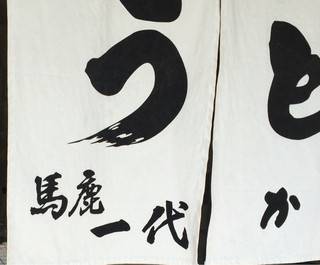 うと
馬鹿
一代
か